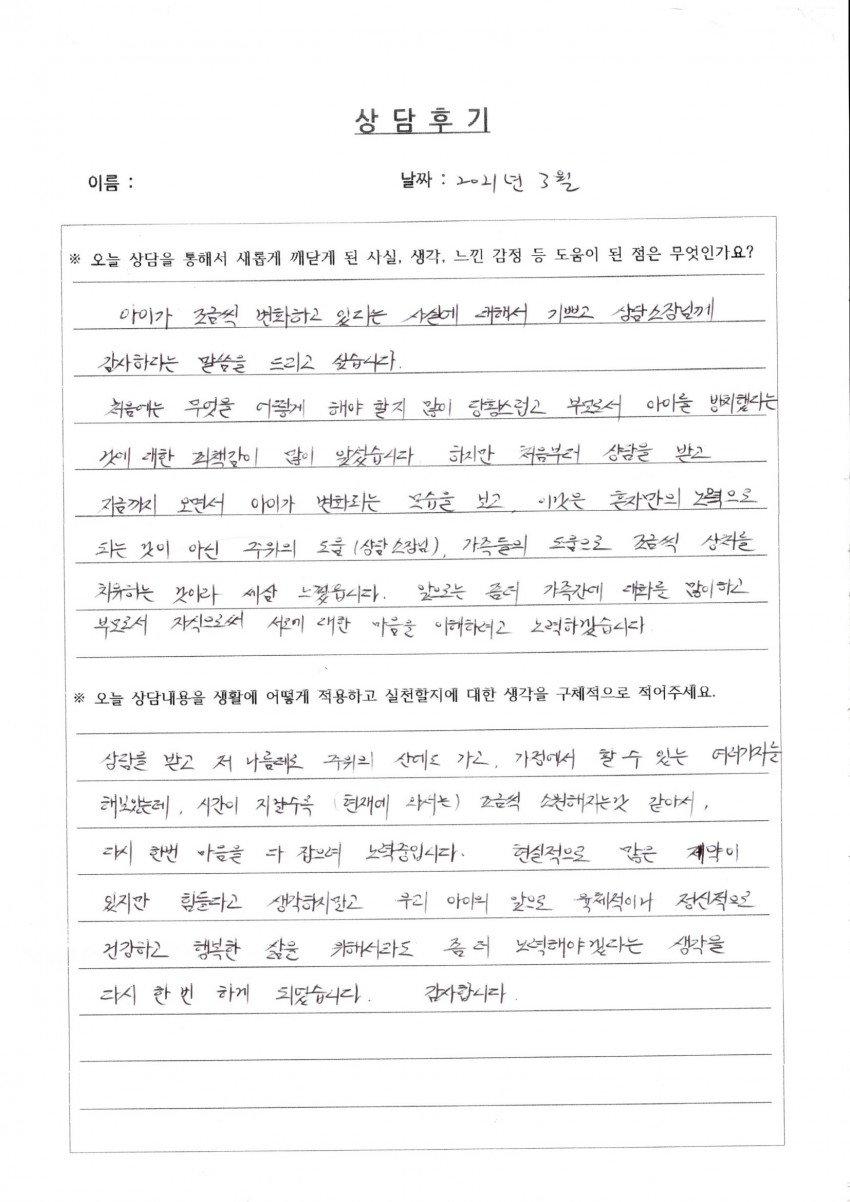 상 담 후 기
이름 : 날짜 : 2021년 3월
※ 오늘 상담을 통해서 새롭게 깨닫게 된 사실, 생각, 느낀 감정 등 도움이 된 점은 무엇인가요?
아이가 조금씩 변화하고 있다는 사실에 대해서 기쁘고 상담소장님께
감사하다는 말씀을 드리고 싶습니다.
처음에는 무엇을 어떻게 해야 할지 많이 당황스럽고 부모로서 아이를 방치했다는
것에 대한 죄책감이 많이 앞섰습니다 하지만 처음부터 상담을 받고
지금까지 오면서 아이가 변화되는 모습을 보고, 이것은 혼자만의 노력으로
되는 것이 아닌 주위의 도움(상담소장님), 가족들의 도움으로 조금씩 상처를
치유하는 것이라 새삼 느꼈습니다. 앞으로는 좀더 가족간에 대화를 많이하고
부모로서 자식으로써 서로에 대한 마음을 이해하려고 노력하겠습니다
※ 오늘 상담내용을 생활에 어떻게 적용하고 실천할지에 대한 생각을 구체적으로 적어주세요.
상담을 받고 저 나름대로 주위의 산에도 가고, 가정에서 할 수 있는 여러가지를
해보았는데, 시간이 지날수록 (현재에 와서는) 조금씩 소원해지는것 같아서,
다시 한번 마음을 다 잡으려 노력중입니다. 현실적으로 많은 제약이
있지만 힘들다고 생각하지말고 우리 아이의 앞으로 육체적이나 정신적으로
건강하고 행복한 삶을 위해서라도 좀 더 노력해야겠다는 생각을
다시 한 번 하게 되었습니다. 감사합니다.